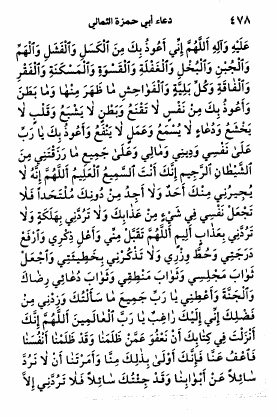 ٤٧٨ دعاء أبي حمزة الثمالي
عَلَيْهِ وَآلِهِ اَللَّهُمَّ إِنِّي أَعُوذُ بِكَ مِنَ الْكَسَلِ وَالْفَشَلِ وَالْهَمِّ
وَالْجُبْنِ وَالْبُخْلِ وَالْغَفْلَةِ وَالْقَسْوَةِ وَالْمَسْكَنَةِ وَالْفَقْرِ
وَالْفَاقَةِ وَكُلِّ بَلِيَّةٍ وَالْفَوَاحِشِ مَا ظَهَرَ مِنْهَا وَمَا بَطَنَ
وَأَعُوذُ بِكَ مِنْ نَفْسٍ لَا تَقْنَعُ وَبَطْنٍ لَا يَشْبَعُ وَقَلْبٍ لَا
يَخْشَعُ وَدُعَاءٍ لَا يُسْمَعُ وَعَمَلٍ لَا يَنْفَعُ وَأَعُوذُ بِكَ يَا رَبِّ
عَلَىٰ نَفْسِي وَدِينِي وَمَالِي وَعَلَىٰ جَمِيعِ مَا رَزَقْتَنِي مِنَ
الشَّيْطَانِ الرَّجِيمِ إِنَّكَ أَنْتَ السَّمِيعُ الْعَلِيمُ اَللَّهُمَّ إِنَّهُ لَا
يُجِيرُنِي مِنْكَ أَحَدٌ وَلَا أَجِدُ مِنْ دُونِكَ مُلْتَحَدًا فَلَا
تَجْعَلْ نَفْسِي فِي شَيْءٍ مِنْ عَذَابِكَ وَلَا تَرُدَّنِي بِهَلَكَةٍ وَلَا
تَرُدَّنِي بِعَذَابٍ أَلِيمٍ اَللَّهُمَّ تَقَبَّلْ مِنِّي وَأَعْلِ ذِكْرِي وَارْفَعْ
دَرَجَتِي وَحُطَّ وِزْرِي وَلَا تَذْكُرْنِي بِخَطِيئَتِي وَاجْعَلْ
ثَوَابَ مَجْلِسِي وَثَوَابَ مَنْطِقِي وَثَوَابَ دُعَائِي رِضَاكَ
وَالْجَنَّةَ وَأَعْطِنِي يَا رَبِّ جَمِيعَ مَا سَأَلْتُكَ وَزِدْنِي مِنْ
فَضْلِكَ إِنِّي إِلَيْكَ رَاغِبٌ يَا رَبَّ الْعَالَمِينَ اَللَّهُمَّ إِنَّكَ
أَنْزَلْتَ فِي كِتَابِكَ أَنْ نَعْفُوَ عَمَّنْ ظَلَمَنَا وَقَدْ ظَلَمْنَا أَنْفُسَنَا
فَاعْفُ عَنَّا فَإِنَّكَ أَوْلَىٰ بِذَٰلِكَ مِنَّا وَأَمَرْتَنَا أَنْ لَا نَرُدَّ
سَائِلًا عَنْ أَبْوَابِنَا وَقَدْ جِئْتُكَ سَائِلًا فَلَا تَرُدَّنِي إِلَّا